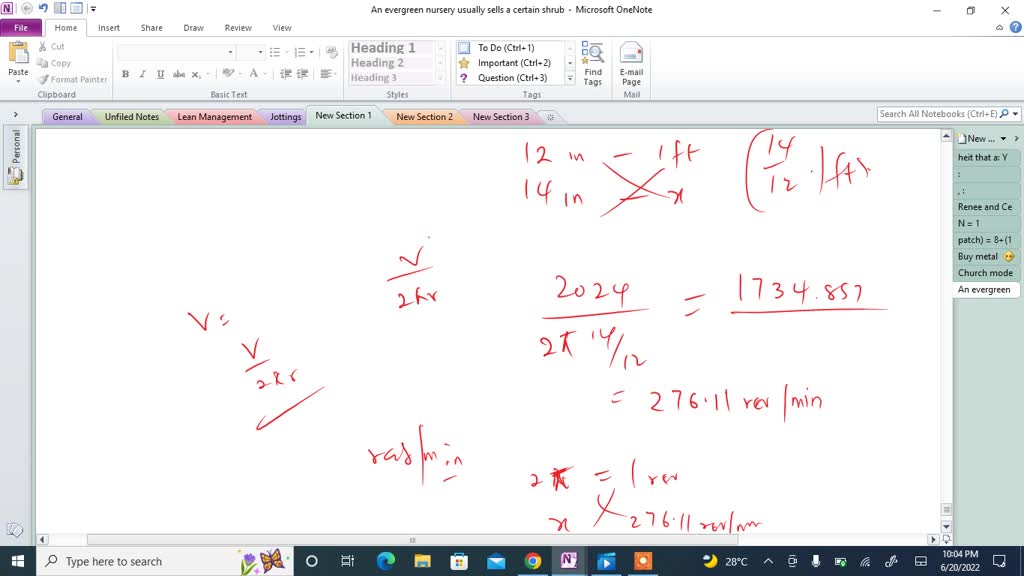 An evergreen nursery usually sells a certain shrub - Microsoft OneNote
File Home Insert Share Draw Review View
Paste
Cut
Copy
Format Painter
Clipboard
B I U abc
Basic Text
Heading 1
Heading 2
Heading 3
Styles
To Do (Ctrl+1)
Important (Ctrl+2)
? Question (Ctrl+3)
Tags
Find Tags
E-mail Page
Mail
General Unfiled Notes Lean Management Jottings New Section 1 New Section 2 New Section 3
Search All Notebooks (Ctrl+E)
Personal
New ...
heit that a: Y
:
, :
Renee and Ce
N = 1
patch) = 8+(1
Buy metal
Church mode
An evergreen
12 in – 1ft
14 in – x
(14/12 · 1ft)
V/2πr
V =
V/2πr
2024/2π 14/12 = 1734.857
= 276.11 rev/min
rad/min
2π = 1 rev
x 276.11 rev/min
Type here to search
28°C
10:04 PM
6/20/2022